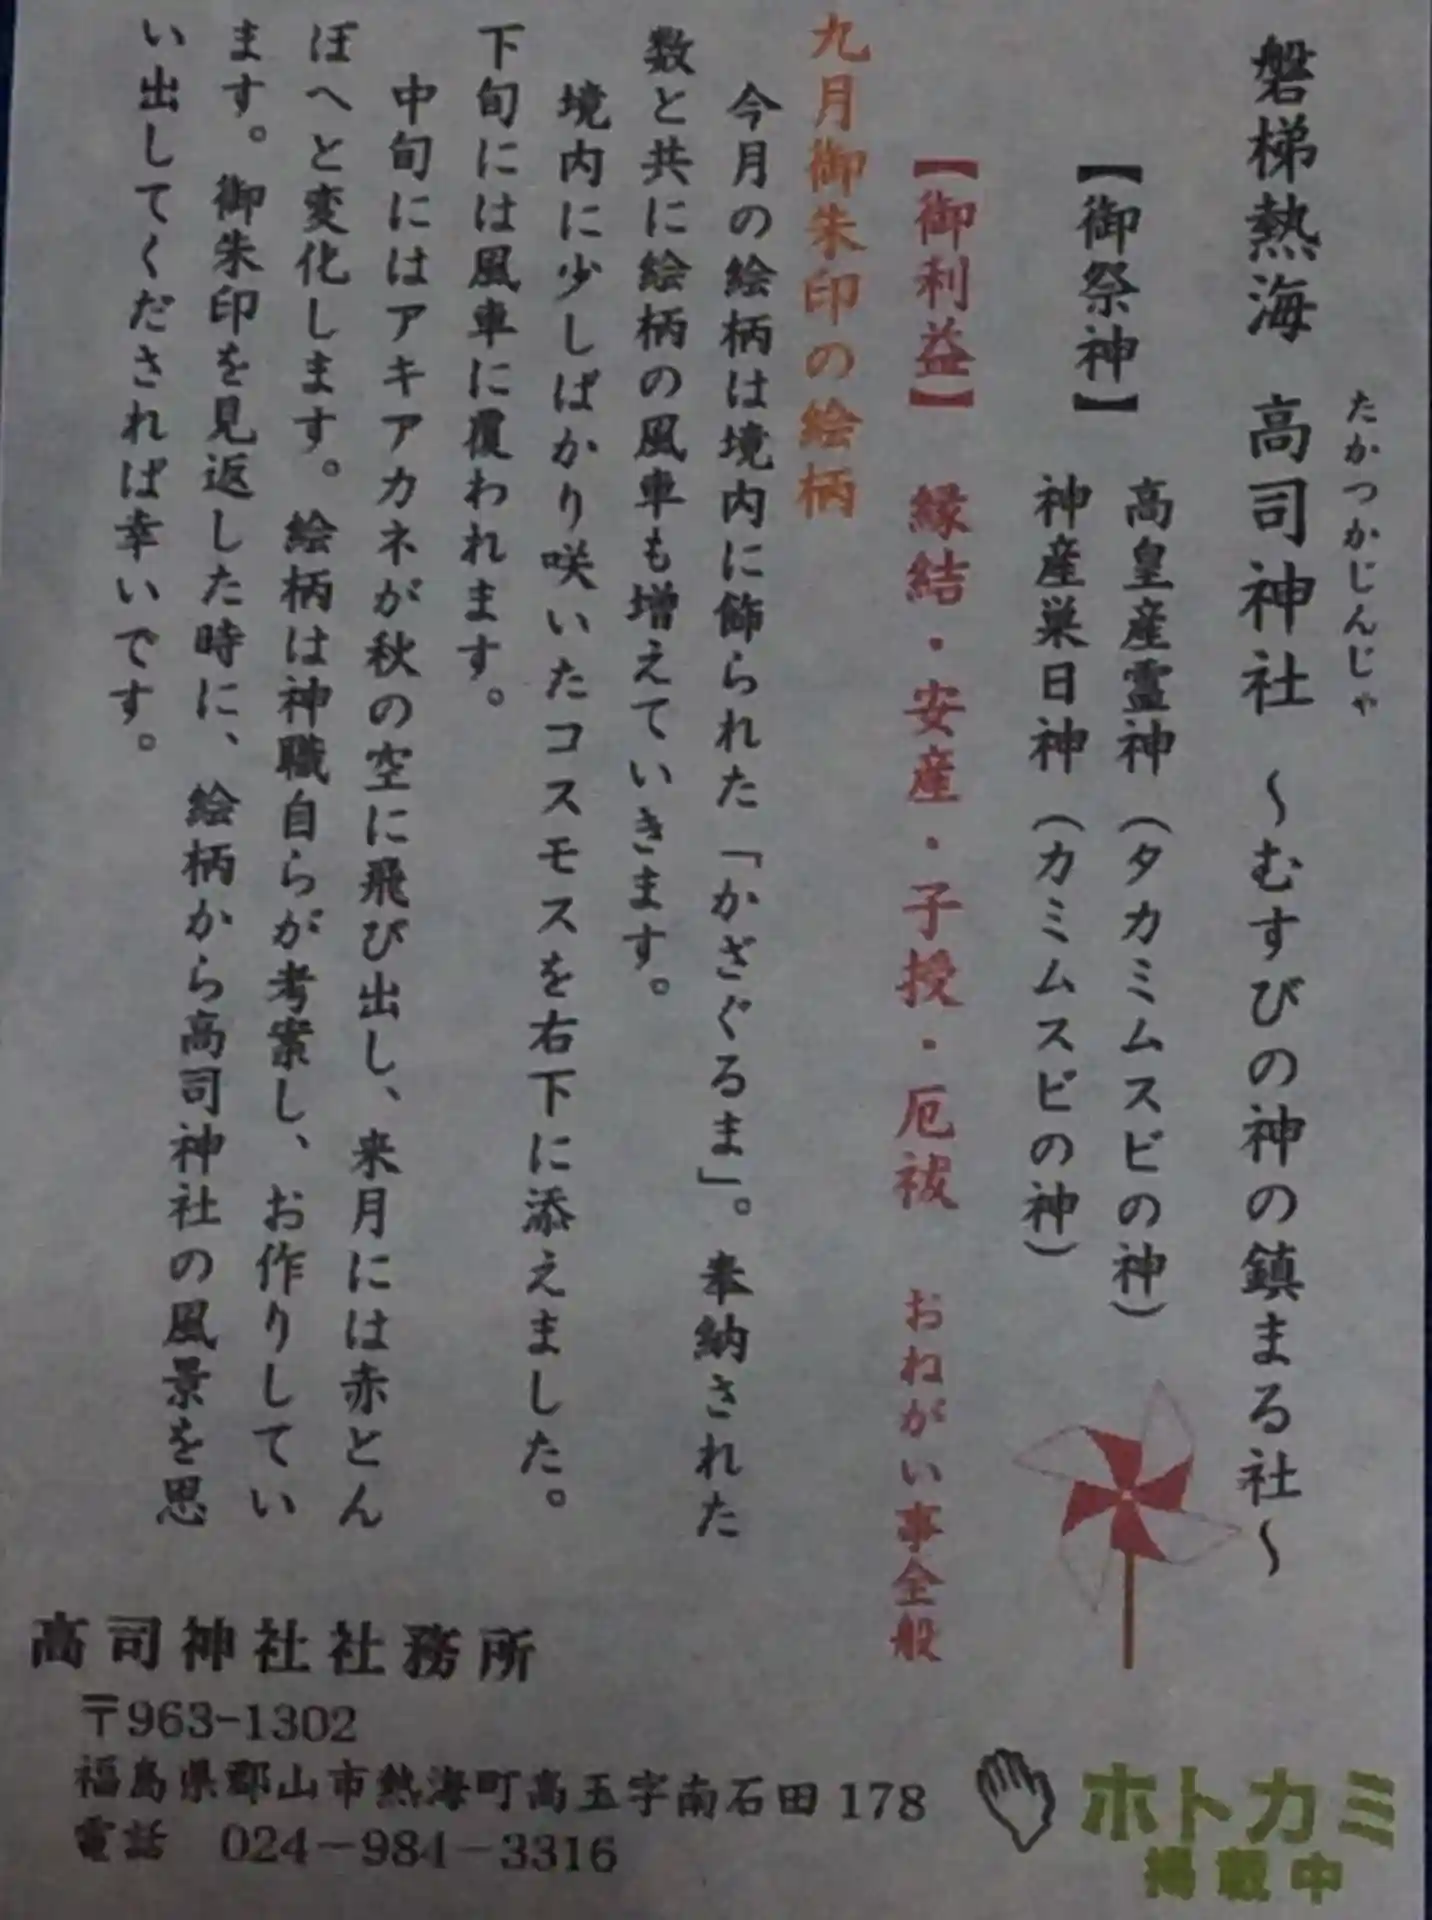 磐梯熱海 高司神社 ～むすびの神の鎮まる社～
たかつかじんじゃ
【御祭神】 高皇産霊神（タカミムスビの神）
神産巣日神（カミムスビの神）
【御利益】 縁結・安産・子授・厄祓 おねがい事全般
九月御朱印の絵柄
今月の絵柄は境内に飾られた「かざぐるま」。奉納された
数と共に絵柄の風車も増えていきます。
境内に少しばかり咲いたコスモスを右下に添えました。
下旬には風車に覆われます。
中旬にはアキアカネが秋の空に飛び出し、来月には赤とん
ぼへと変化します。絵柄は神職自らが考案し、お作りしてい
ます。御朱印を見返した時に、絵柄から高司神社の風景を思
い出してくだされば幸いです。
高司神社社務所
〒963-1302
福島県郡山市熱海町高玉字南石田178
電話 024-984-3316
ホトカミ
掲載中